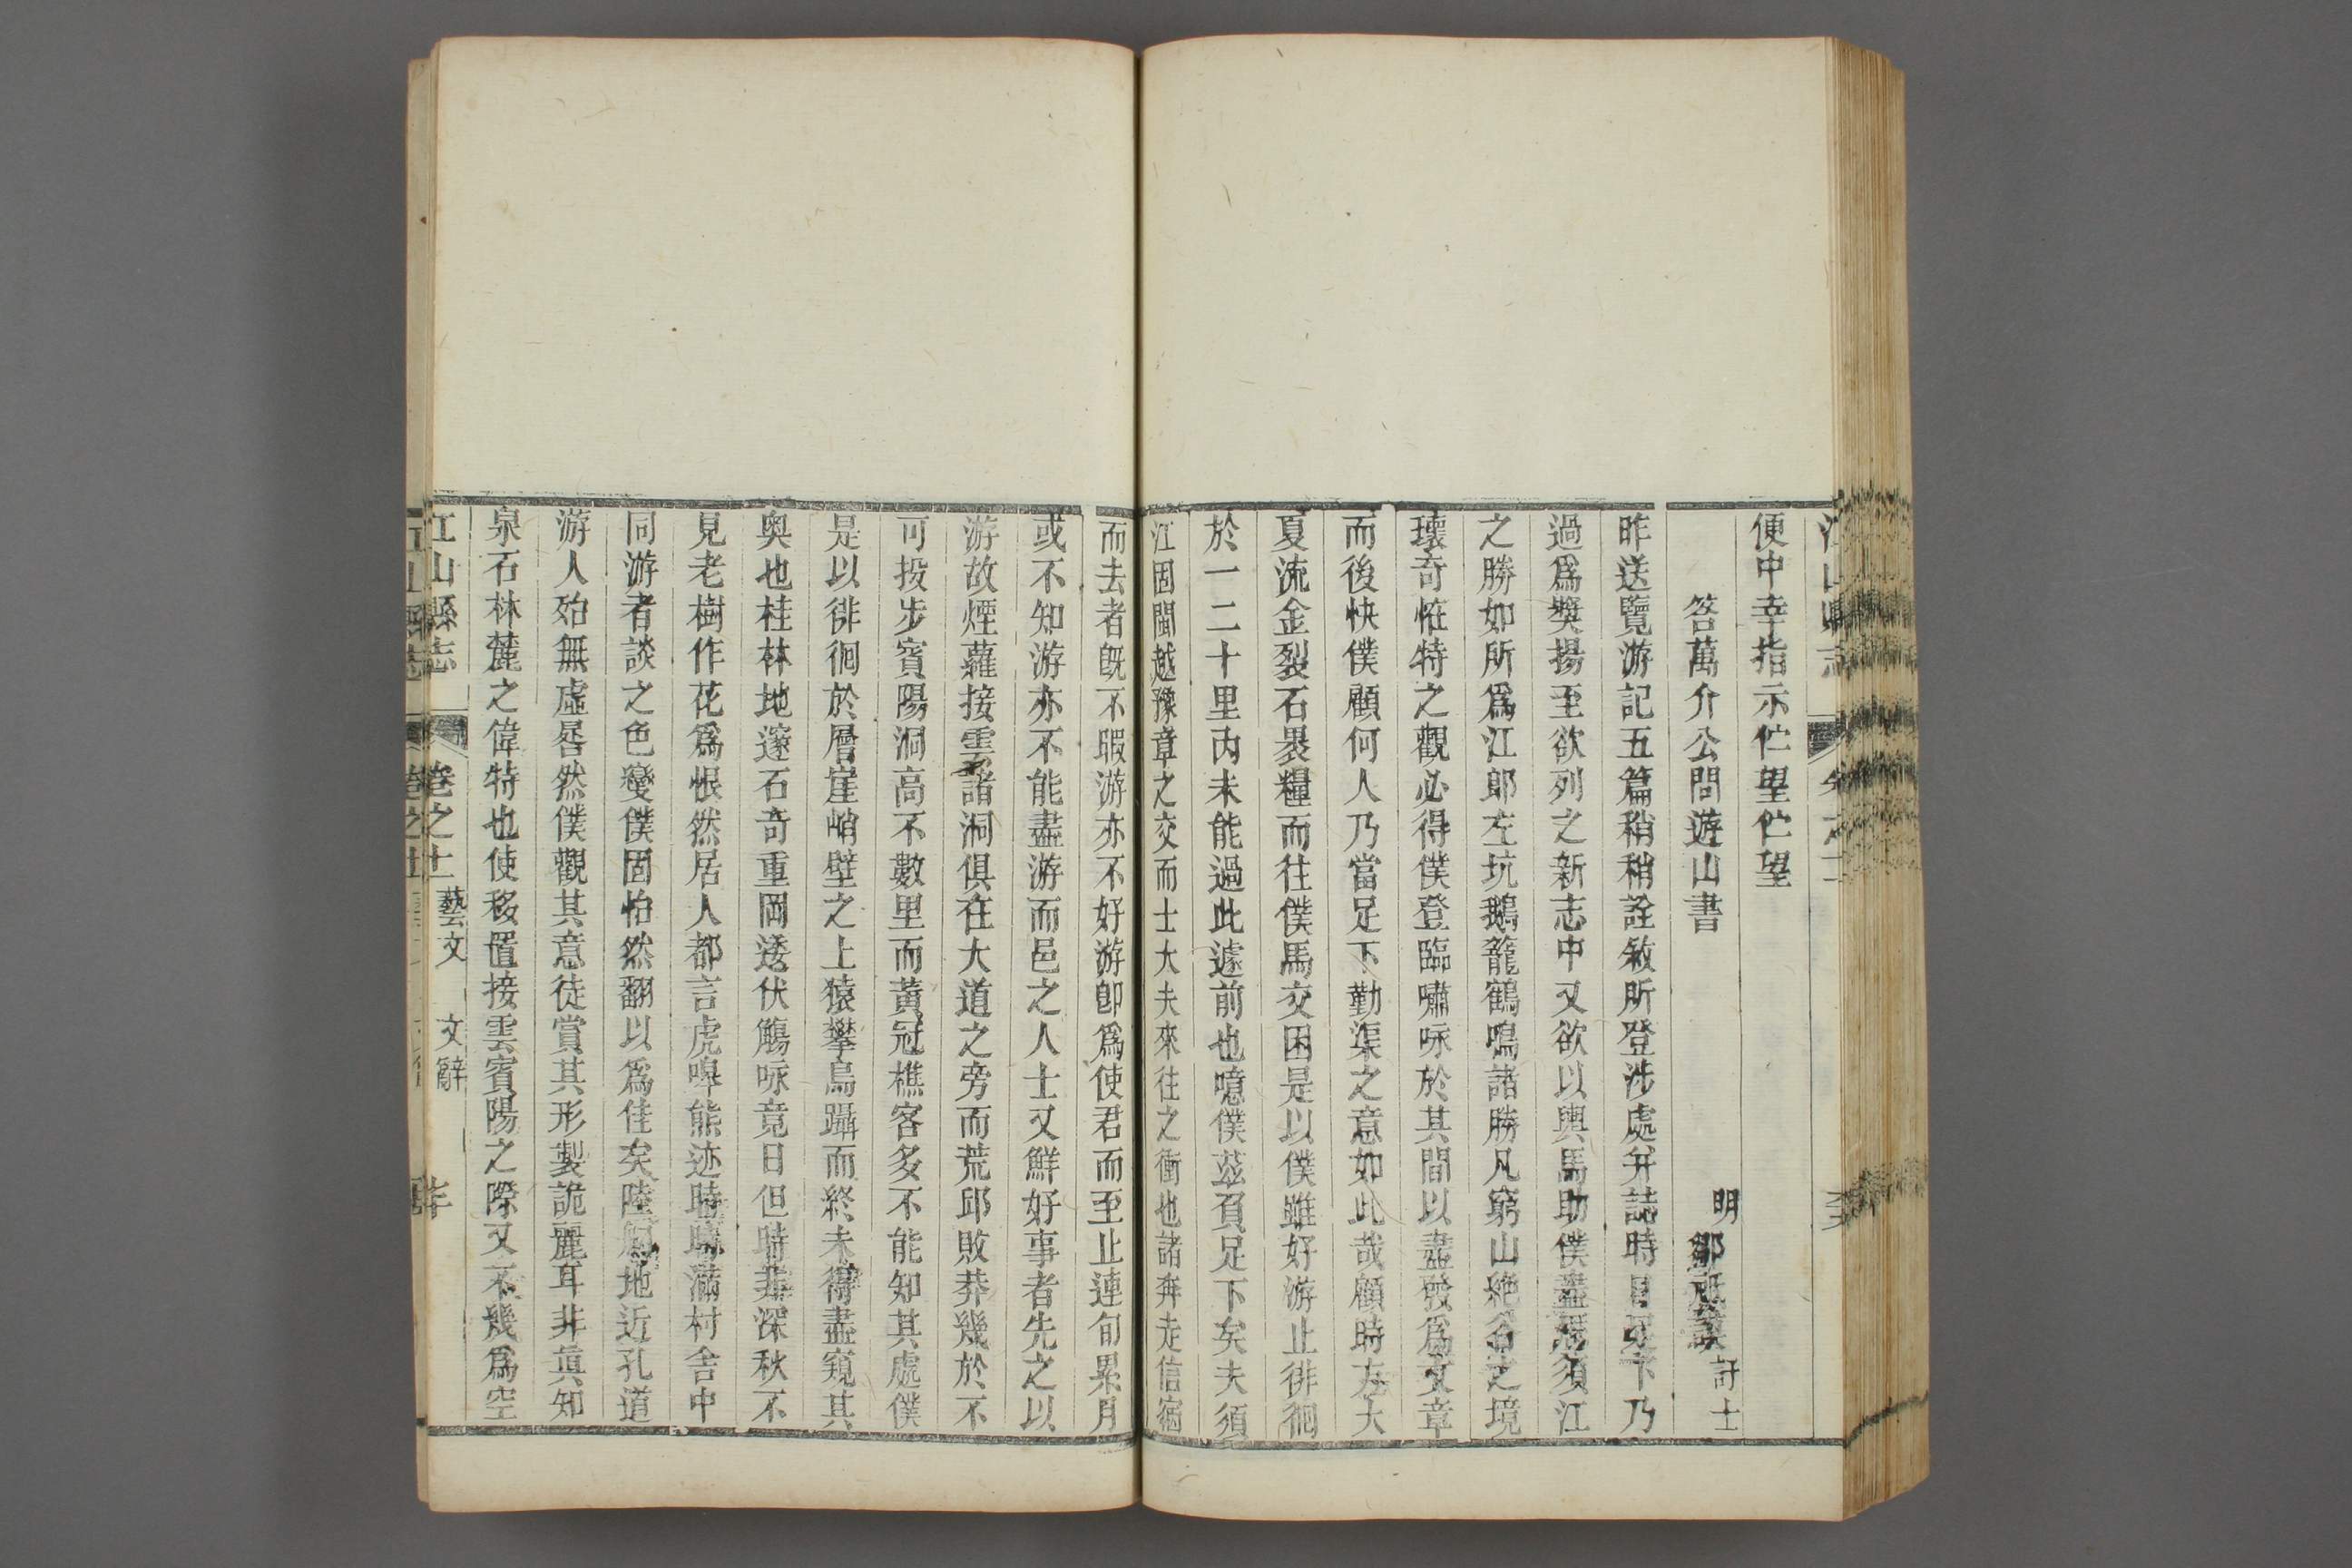 便中幸指示伫望伫望
答萬介公問遊山書
明 鄒祗謨 訏士
昨送覽游記五篇稍稍詮敘所登涉處并誌時日足下乃
過爲獎揚至欲列之新志中又欲以輿馬助僕盡歷須江
之勝如所爲江郎左坑鵝籠鶴鳴諸勝凡窮山絶谷之境
瓌奇恠特之觀必得僕登臨嘯咏於其間以盡發爲文章
而後快僕顧何人乃當足下勤渠之意如此哉顧時方大
夏流金裂石褁糧而往僕馬交困是以僕雖好游止徘徊
於一二十里內未能過此遽前也噫僕茲負足下矣夫須
江固閩越豫章之交而士大夫來往之衝也諸奔走信宿
而去者旣不暇游亦不好游卽爲使君而至止連旬累月
或不知游亦不能盡游而邑之人士又鮮好事者先之以
游故煙蘿接雲諸洞俱在大道之旁而荒邱敗莽幾於不
可投步賓陽洞高不數里而黃冠樵客多不能知其處僕
是以徘徊於層崖峭壁之上猿攀鳥躡而終未得盡窺其
奥也桂林地邃石奇重岡逶伏觴咏竟日但時非深秋不
見老樹作花爲恨然居人都言虎嘷熊迹時時滿村舍中
同游者談之色變僕固怡然翻以爲佳矣陸地近孔道
游人殆無虛晷然僕觀其意徒賞其形製詭麗耳非眞知
泉石林麓之偉特也使移置接雲賓陽之際又不幾爲空
江山縣志 卷之十一 藝文 文辭